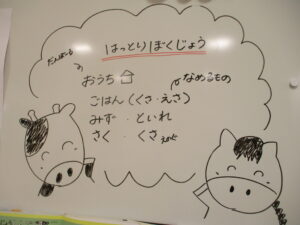 はっとりぼくじょう
だんぼーる
の
おうち
なめるもの
ごはん(くさ・えさ)
みず・といれ
さく・くさ